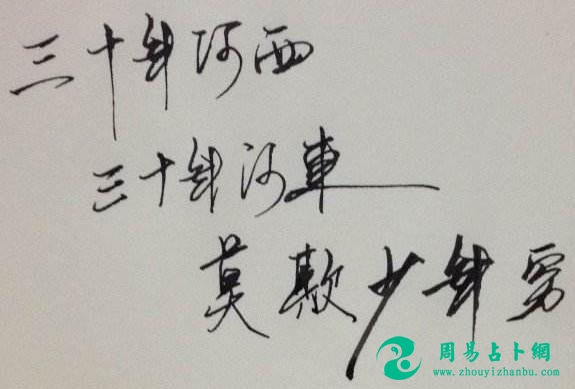 三十年河西
三十年河東
莫欺少年穷
周易占卜網
www.zhouyizhanbu.com